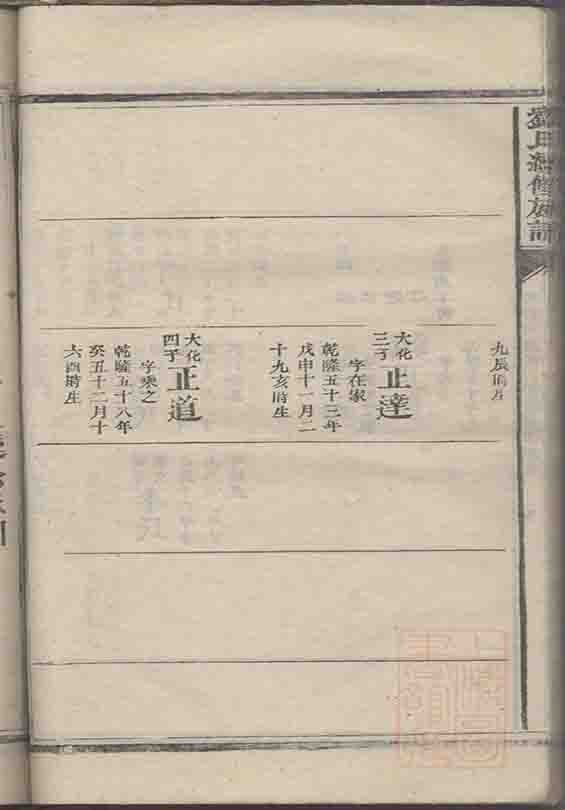 劉氏續修族譜
九辰時生
大化
三子
正達
字在家
乾隆五十三年
戊申十一月二
十九亥時生
大化
四子
正道
字乘之
乾隆五十八年
癸丑十二月十
六酉時生